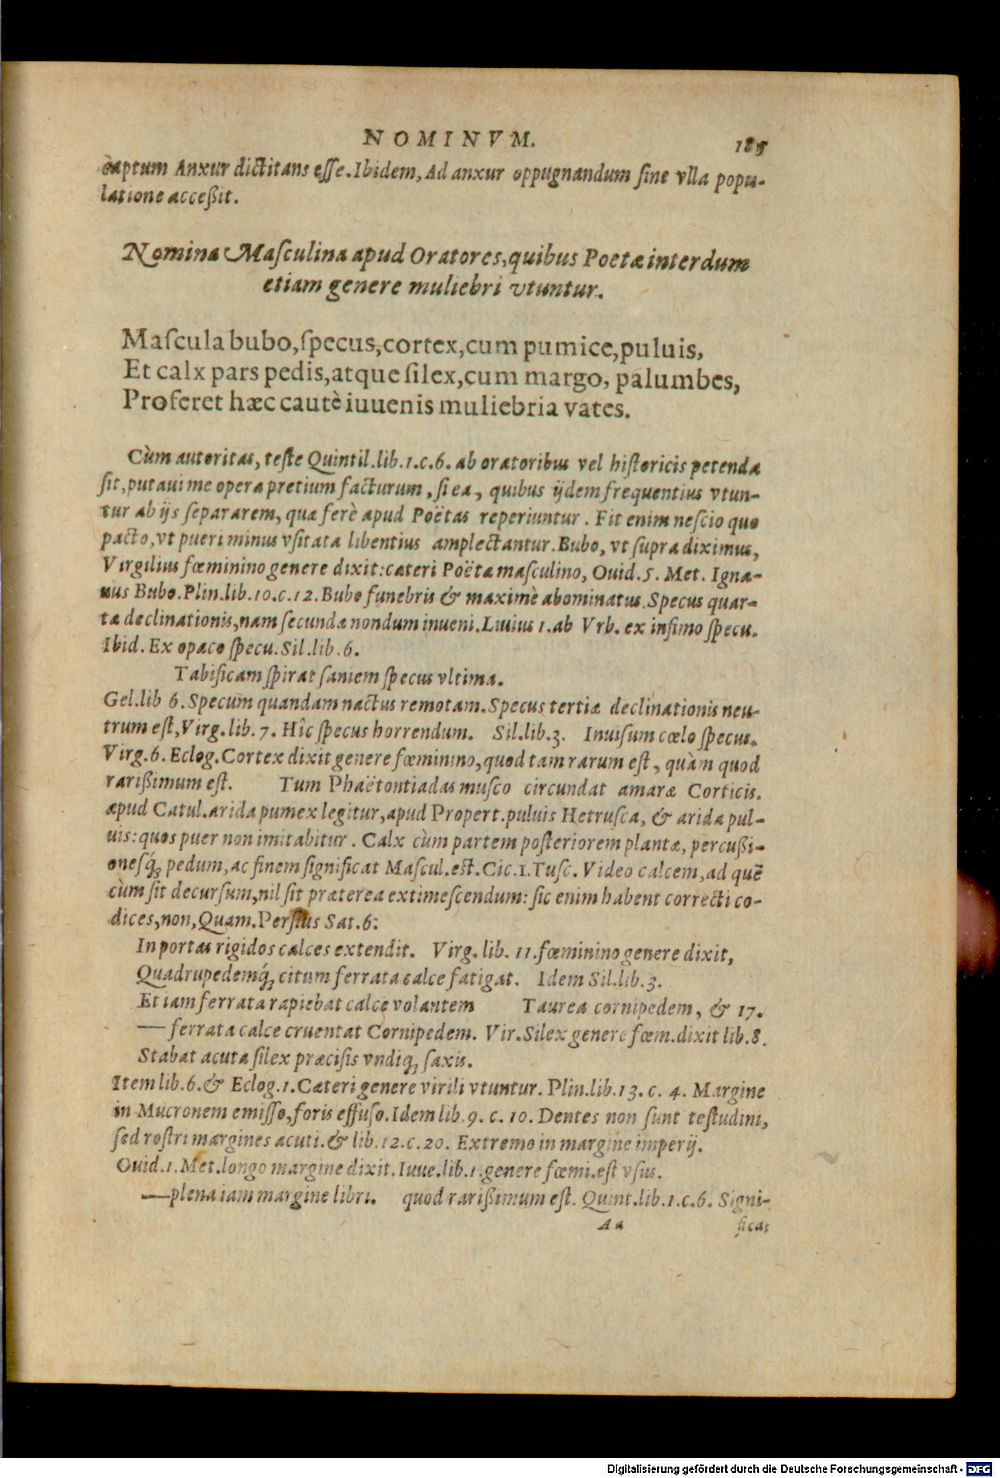 NOMINVM. 185
captum Anxur dictitans esse. Ibidem, Ad anxur oppugnandum sine vlla popu-
latione acceßit.
Nomina Masculina apud Oratores, quibus Poetæ interdum
etiam genere muliebri vtuntur.
Mascula bubo, specus, cortex, cum pumice, puluis,
Et calx pars pedis, atque silex, cum margo, palumbes,
Proferet hæc cautè iuuenis muliebria vates.
Cùm autoritas, teste Quintil. lib. 1. c. 6. ab oratoribus vel historicis petenda
sit, putaui me opera pretium facturum, si ea, quibus ijdem frequentius vtun-
tur ab ijs separarem, quæ ferè apud Poëtas reperiuntur. Fit enim nescio quo
pacto, vt pueri minus vsitata libentius amplectantur. Bubo, vt supra diximus,
Virgilius fœminino genere dixit: cateri Poëtæ masculino, Ouid. 5. Met. Igna-
uus Bubo. Plin. lib. 10. c. 12. Bubo funebris & maximè abominatus. Specus quar-
tæ declinationis, nam secundæ nondum inueni. Liuius 1. ab Vrb. ex infimo specu.
Ibid. Ex opaco specu. Sil. lib. 6.
Tabificam spirat saniem specus vltima.
Gel. lib 6. Specum quandam nactus remotam. Specus tertiæ declinationis neu-
trum est, Virg. lib. 7. Hîc specus horrendum. Sil. lib. 3. Inuisum cœlo specus.
Virg. 6. Eclog. Cortex dixit genere fœminino, quod tam rarum est, quàm quod
rarißimum est. Tum Phaëtontiadas musco circundat amaræ Corticis.
apud Catul. arida pumex legitur, apud Propert. puluis Hetrusca, & arida pul-
uis: quos puer non imitabitur. Calx cùm partem posteriorem plantæ, percußi-
onesq́; pedum, ac finem significat Mascul. est. Cic. 1. Tusc. Video calcem, ad quē
cùm sit decursum, nil sit præterea extimescendum: sic enim habent correcti co-
dices, non, Quam. Persius Sat. 6:
In portas rigidos calces extendit. Virg. lib. 11. fœminino genere dixit,
Quadrupedemq́; citum ferrata calce fatigat. Idem Sil. lib. 3.
Et iam ferrata rapiebat calce volantem Taurea cornipedem, & 17.
— ferrata calce cruentat Cornipedem. Vir. Silex genere fœm. dixit lib. 8.
Stabat acuta silex præcisis vndiq́; saxis.
Item lib. 6. & Eclog. 1. Cæteri genere virili vtuntur. Plin. lib. 13. c. 4. Margine
in Mucronem emisso, foris effuso. Idem lib. 9. c. 10. Dentes non sunt testudini,
sed rostri margines acuti. & lib. 12. c. 20. Extremo in margine imperij.
Ouid. 1. Met. longo margine dixit. Iuue. lib. 1. genere fœmi. est vsus.
— plena iam margine libri. quod rarißimum est. Quint. lib. 1. c. 6. Signi-
Aa ficat
Digitalisierung gefördert durch die Deutsche Forschungsgemeinschaft - DFG